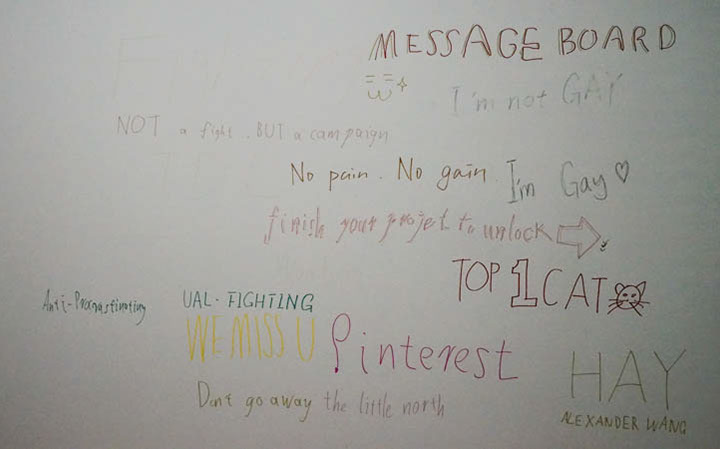 MESSAGE BOARD
I'm not GAY
NOT a fight. BUT a campaign
No pain. No gain.
I'm Gay ♡
finish your projet to unlock
TOP 1 CAT
Anti-Procrastinating
UAL. FIGHTING
WE MISS U
Pinterest
HAY
Dont go away the little north
ALEXANDER WANG